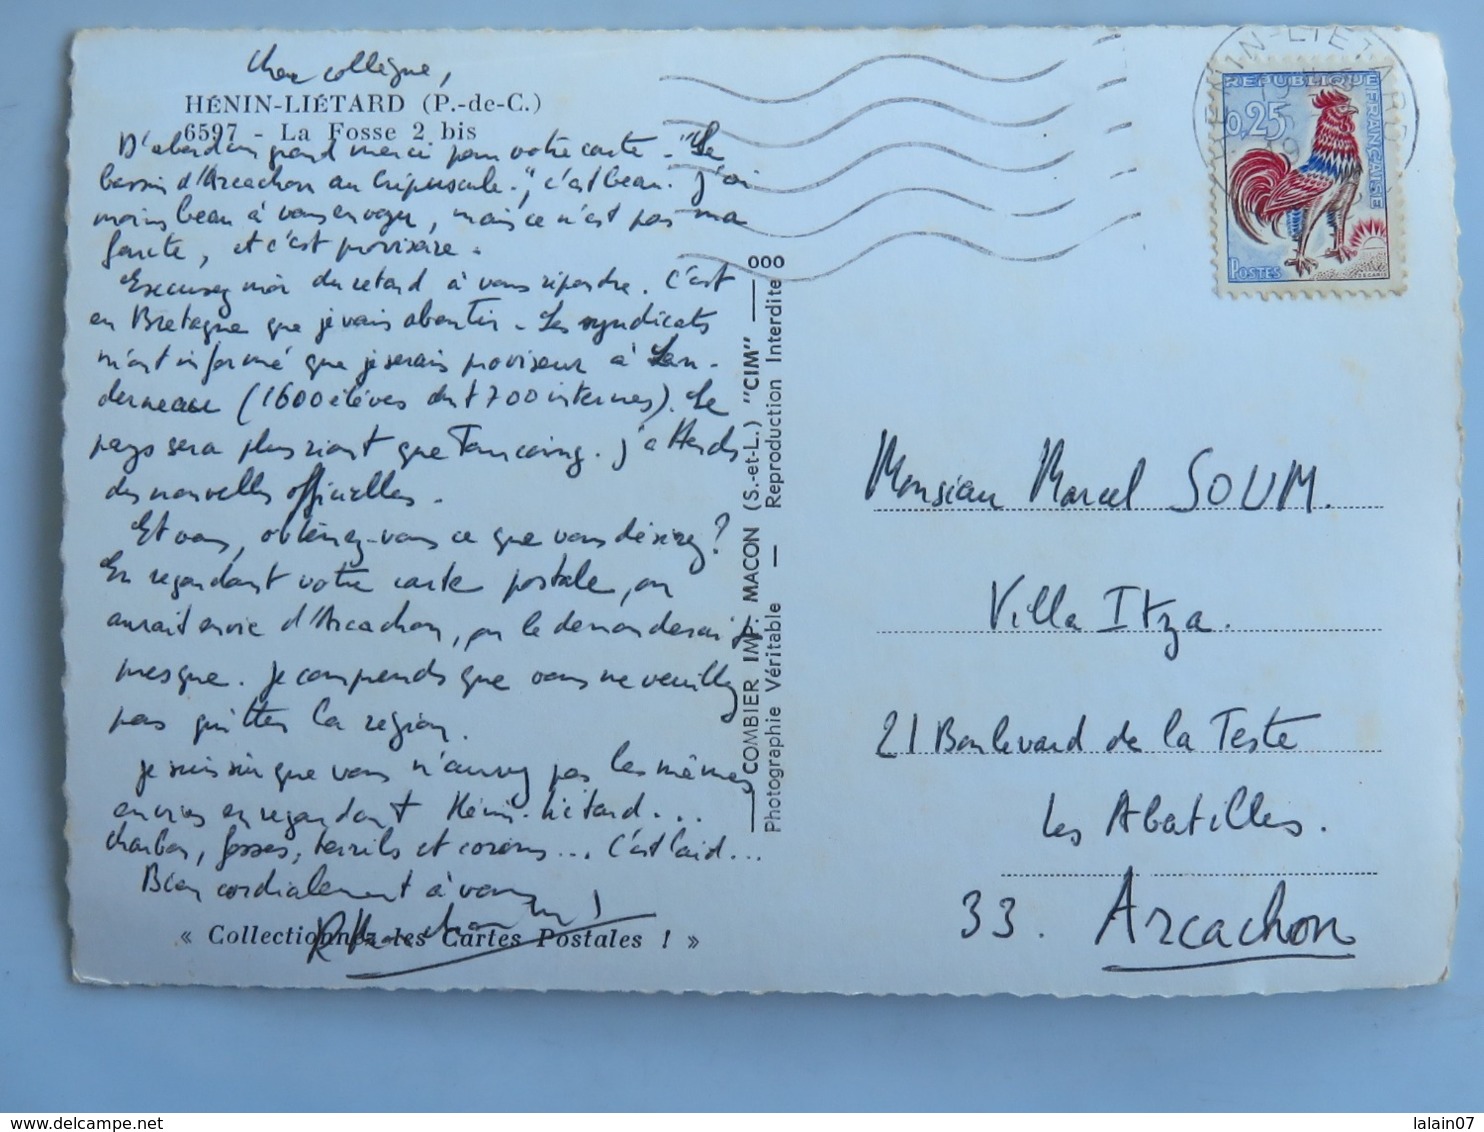 Cher collègue,
HÉNIN-LIÉTARD (P.-de-C.)
6597 - La Fosse 2 bis
D'abord un grand merci pour votre carte - "Le
bassin d'Arcachon au Crépuscule", c'est beau. J'ai
moins beau à vous envoyer, mais ce n'est pas ma
faute, et c'est provisoire.
Excusez moi du retard à vous répondre. C'est
en Bretagne que je vais aboutir - Les syndicats
m'ont informé que je serais proviseur à Lan-
derneau (1600 élèves dont 700 internes). Le
pays sera plus riant que Tourcoing. J'attends
des nouvelles officielles.
Et vous, obtenez-vous ce que vous désirez?
En regardant votre carte postale, on
aurait envie d'Arcachon, on le demanderait
presque. Je comprends que vous ne veuillez
pas quitter la région.
Je suis sûr que vous n'aurez pas les mêmes
envies en regardant Hénin-Liétard...
charbon, fosses, terrils et corons... C'est laid...
Bien cordialement à vous
« Collectionnez les Cartes Postales ! »
COMBIER IMP. MACON (S.-et-L.) "CIM"
Photographie Véritable — Reproduction Interdite
000
HENIN-LIETARD
REPUBLIQUE FRANÇAISE
0,25
POSTES
Monsieur Marcel SOUM.
Villa Itza.
21 Boulevard de la Teste
Les Abatilles.
33. Arcachon
www.delcampe.net
lalain07